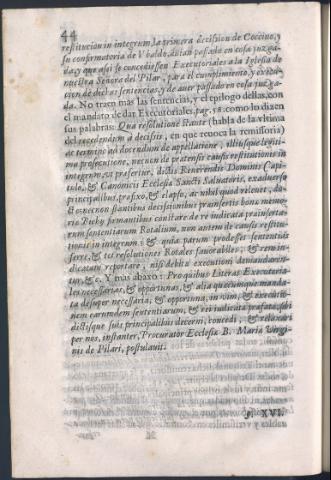 44
restitucion in integrum la primera decision de Coccino, y
su confirmatoria de Vbaldo, auian passado en cosa juzga-
da, y que assi se concediessen Executoriales a la Iglesia de
nuestra Señora del Pilar, para el cumplimiento, y execu-
cion de dichas sentencias, y de auer passado en cosa juzga-
da. No traen mas las sentencias, y el epilogo dellas con
el mandato de dar Executoriales, pag. 58. como lo dizen
sus palabras: Qua resolutione stante (habla de la vltima
del recedendum a decisis, en que reuoca la remissoria)
ac termino ad docendum de appellatione, illiusque legiti-
ma prosecutione, necnon de prætensis causis restitutionis in
integrum, vt præfertur, dictis Reuerendis Dominis Capi-
tulo, & Canonicis Ecclesiæ Sancti Saluatoris, ex aduerso
principalibus, præfixo, & elapso, ac nihil quod releuet, do-
cto, necnon stantibus decisionibus præinsertis bonæ memo-
riæ firmantibus constare de re iudicata præinserta-
rum sententiarum Rotalium, non autem de causis restitu-
tionis in integrum: & quia parum prodesset sententias
ferre, & tot resolutiones Rotales fauorabiles, & rem iu-
dicatam reportare, nisi debitæ executioni demandaren-
tur, &c. Y mas abaxo: Pro quibus Literas Executoria-
les necessarias, & opportunas, & alia quæcumque manda-
ta desuper necessaria, & opportuna, in vim, & executio-
nem earumdem sententiarum, & rei iudicatæ præfatæ, sibi
dictisque suis principalibus decerni, concedi, & relaxari
per nos, instanter, Procurator Ecclesiæ B. Mariæ Virgi-
nis de Pilari, postulauit.
§. XVI.